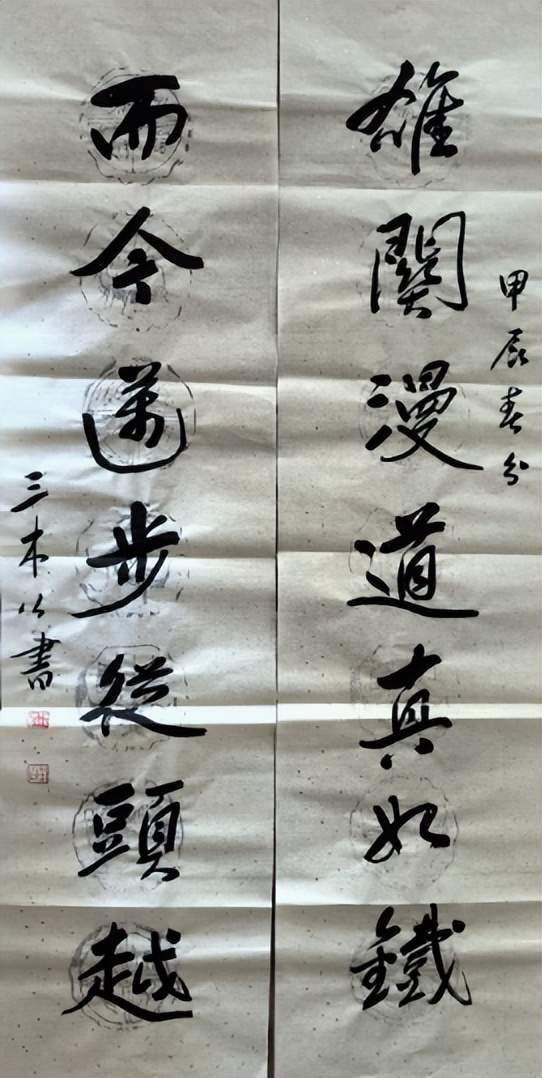 甲辰春分
雄關漫道真如鐵
而今邁步從頭越
三木公書